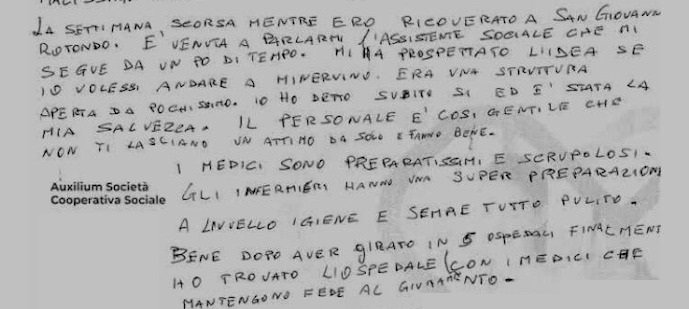 LA SETTIMANA SCORSA MENTRE ERO RICOVERATO A SAN GIOVANN
ROTONDO. E VENUTA A PARLARMI L'ASSISTENTE SOCIALE CHE MI
SEGUE DA UN PO DI TEMPO. MI HA PROSPETTATO L'IDEA SE
IO VOLESSI ANDARE A MINERVINO. ERA UNA STRUTTURA
APERTA DA POCHISSIMO. IO HO DETTO SUBITO SI ED E' STATA LA
MIA SALVEZZA. IL PERSONALE E' COSI GENTILE CHE
NON TI LASCIANO UN ATTIMO DA SOLO E FANNO BENE.
I MEDICI SONO PREPARATISSIMI E SCRUPOLOSI.
Auxilium Società
Cooperativa Sociale
GLI INFERMIERI HANNO UNA SUPER PREPARAZIONE
A LIVVELLO IGIENE E SEMPRE TUTTO PULITO.
BENE DOPO AVER GIRATO IN 5 OSPEDALI FINALMENT
HO TROVATO L'OSPEDALE (CON I MEDICI CHE
MANTENGONO FEDE AL GIURAMENTO.